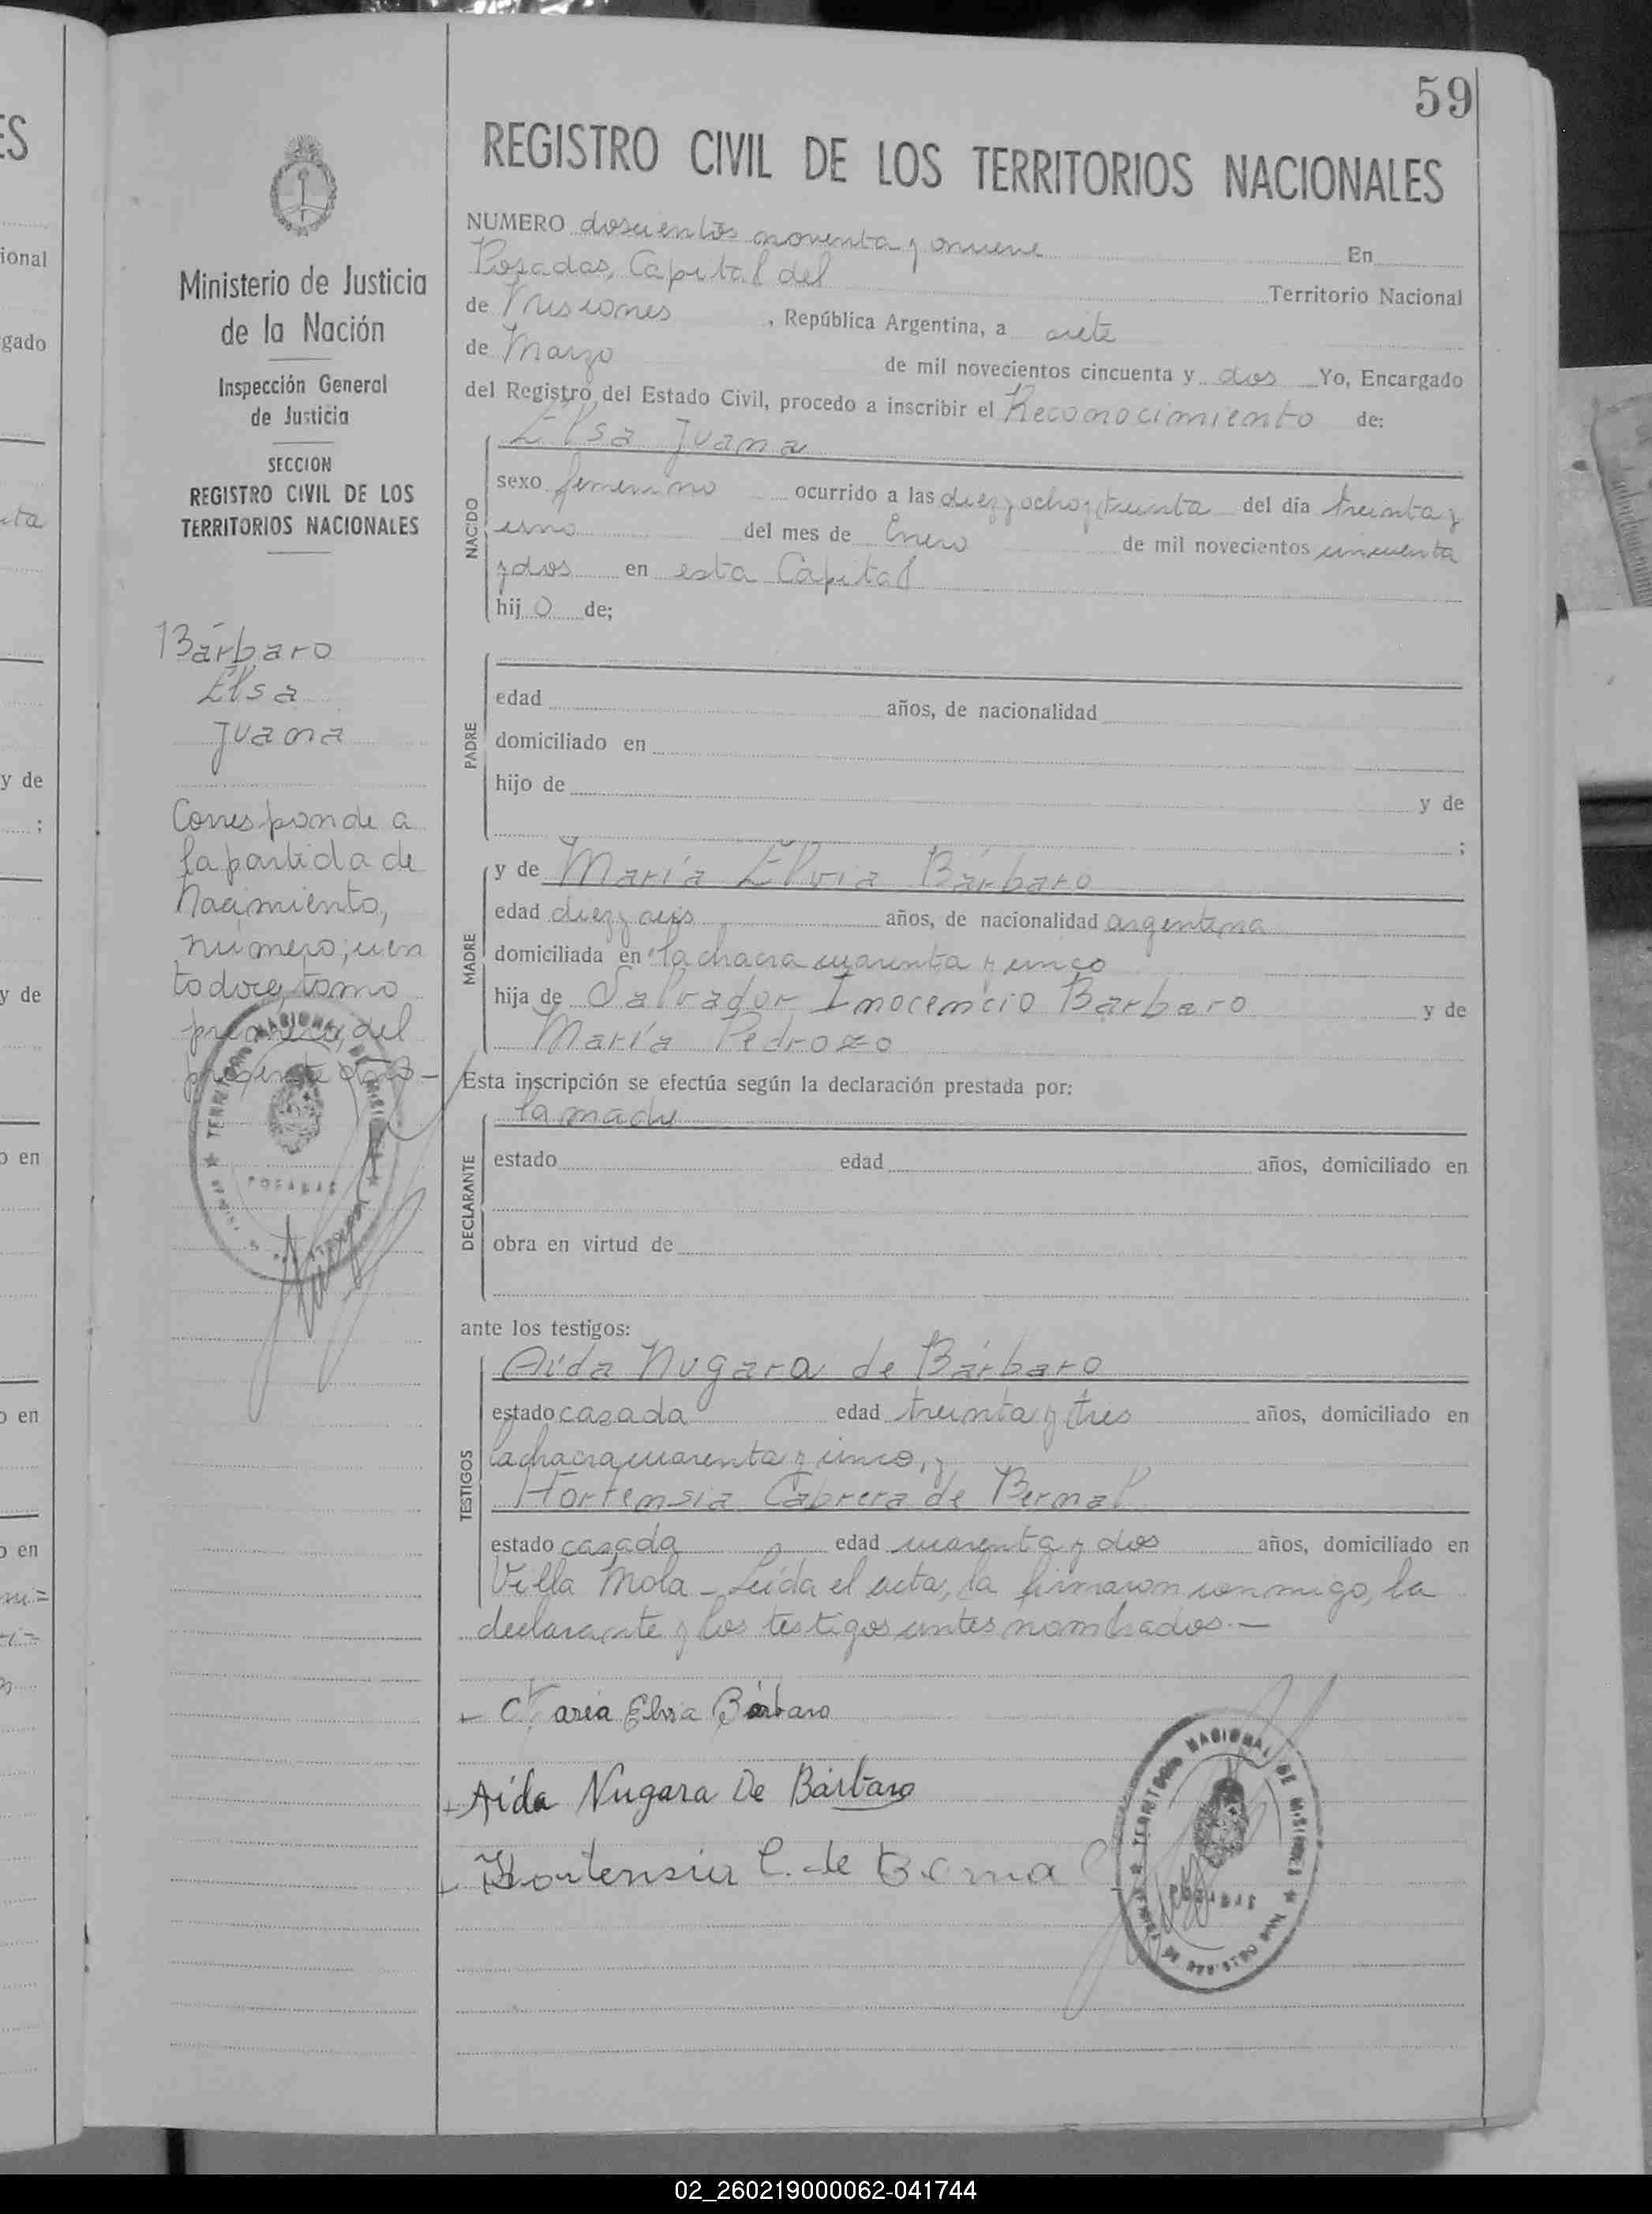 59
REGISTRO CIVIL DE LOS TERRITORIOS NACIONALES
NUMERO doscientos noventa y nueve En
Posadas, Capital del Territorio Nacional
de Misiones, República Argentina, a siete
de Marzo de mil novecientos cincuenta y dos Yo, Encargado
del Registro del Estado Civil, procedo a inscribir el Reconocimiento de:
Elsa Juana
NACIDO
sexo femenino ocurrido a las diez y ocho y treinta del día treinta y
uno del mes de Enero de mil novecientos cincuenta
y dos en esta Capital
hij o de;
PADRE
edad años, de nacionalidad
domiciliado en
hijo de y de
;
MADRE
y de María Elvia Bárbaro
edad diez y seis años, de nacionalidad argentina
domiciliada en la chacra cuarenta y cinco
hija de Salvador Inocencio Bárbaro y de
María Pedrozo
Esta inscripción se efectúa según la declaración prestada por:
la madre
DECLARANTE
estado edad años, domiciliado en
obra en virtud de
ante los testigos:
TESTIGOS
Aída Nugara de Bárbaro
estado casada edad treinta y tres años, domiciliado en
la chacra cuarenta y cinco, y
Hortensia Cabrera de Bernal
estado casada edad cuarenta y dos años, domiciliado en
Villa Mola - Leída el acta, la firmaron conmigo, la
declarante y los testigos antes nombrados.-
María Elvia Bárbaro
Aída Nugara De Bárbaro
Hortensia C. de Bernal
TERRITORIO NACIONAL DE MISIONES
Ministerio de Justicia
de la Nación
Inspección General
de Justicia
SECCION
REGISTRO CIVIL DE LOS
TERRITORIOS NACIONALES
Bárbaro
Elsa
Juana
Corresponde a
la partida de
Nacimiento,
número; cien
to doce, tomo
primero, del
presente año-
TERRITORIO NACIONAL DE MISIONES
POSADAS
ES
ional
gado
y de
;
y de
o en
o en
o en
02_260219000062-041744